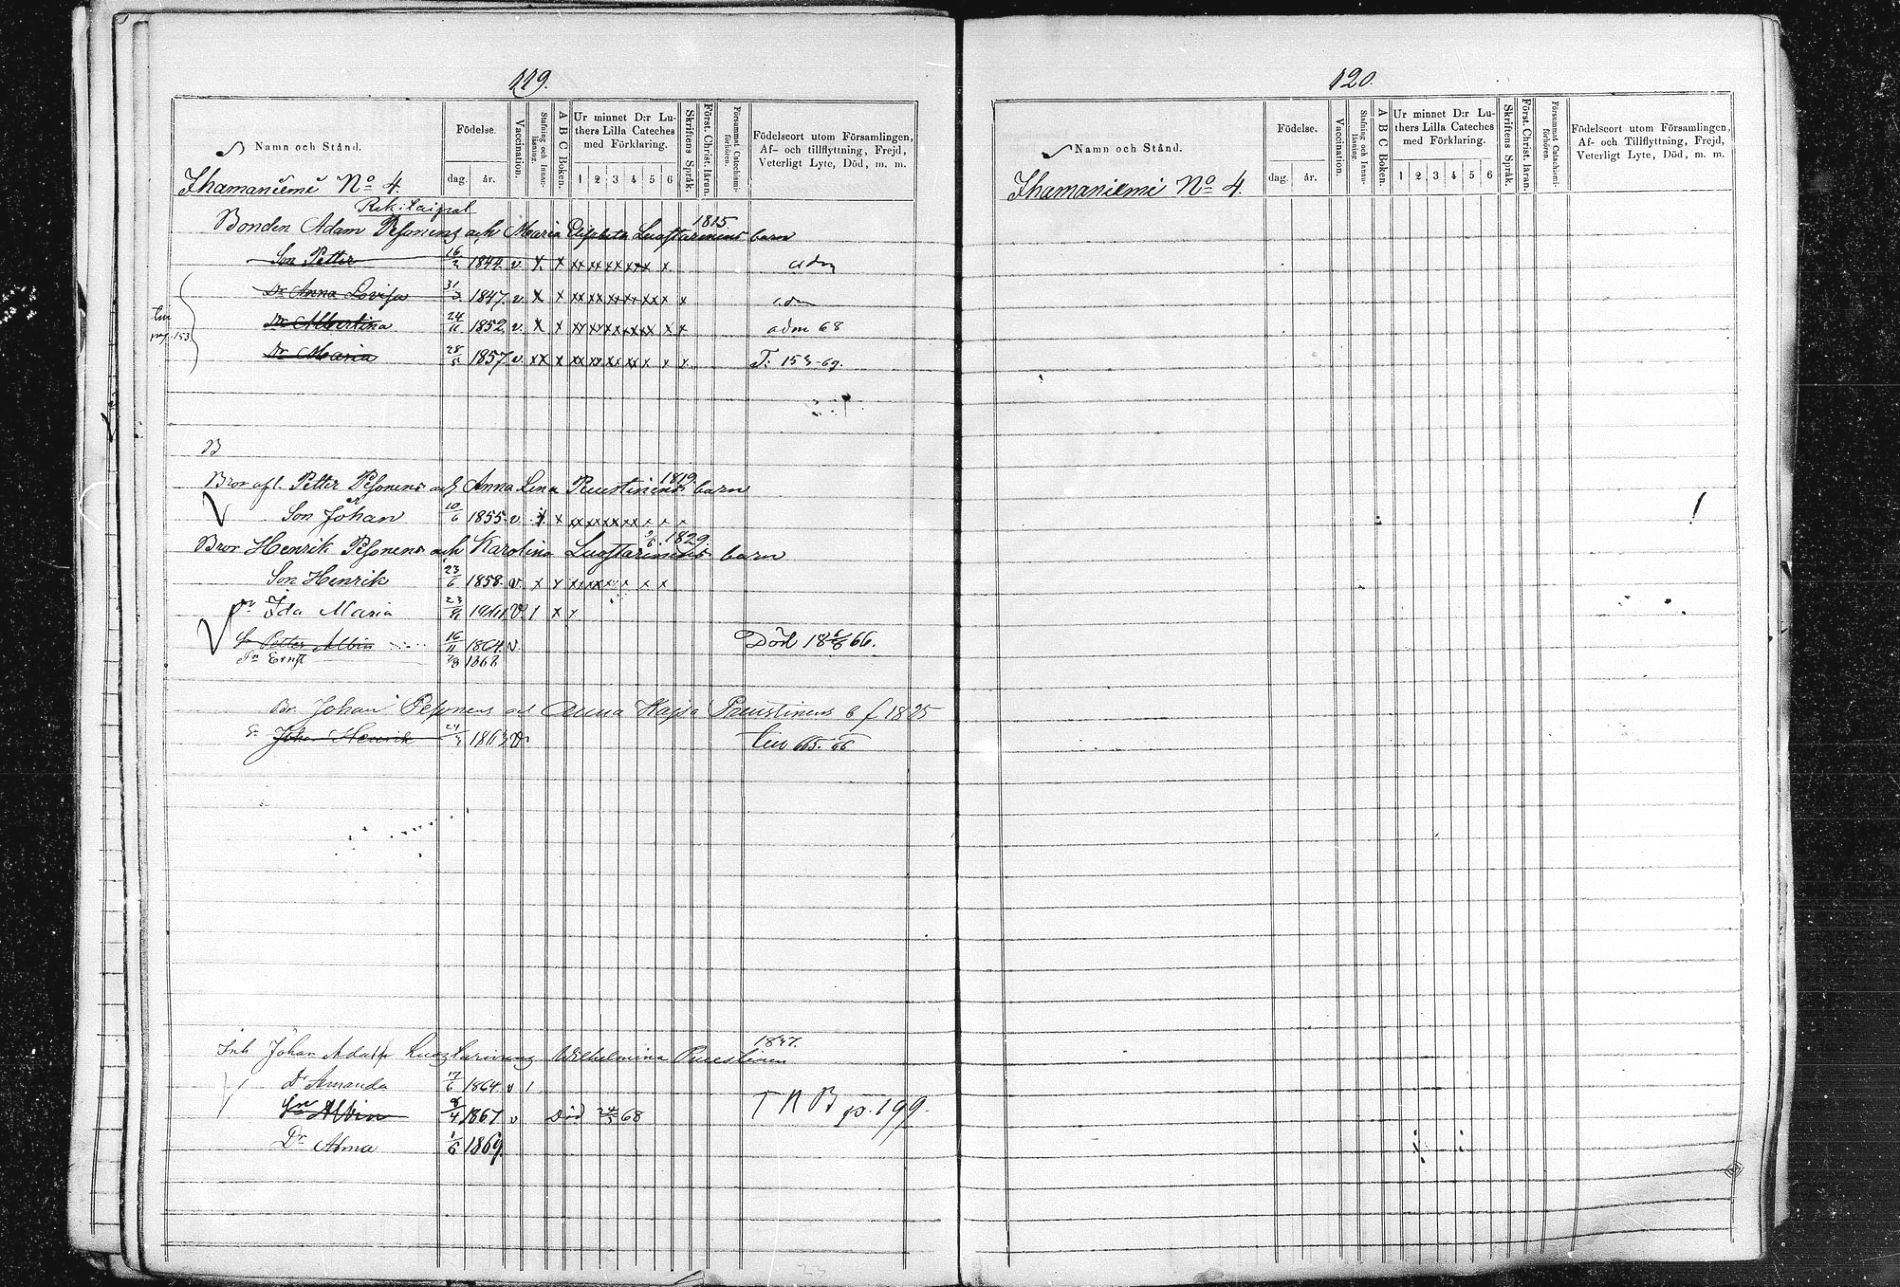 119.
Namn och Stånd.
Födelse.
dag.
år.
Vaccination.
Stafning och Innan-
läsning.
A B C Boken.
Ur minnet D:r Lu-
thers Lilla Cateches
med Förklaring.
1 2 3 4 5 6
Skriftens Språk.
Först. Christ. läran.
Försummat Catechismi-
förhören.
Födelseort utom Församlingen,
Af- och tillflyttning, Frejd,
Veterligt Lyte, Död, m. m.
Ihamaniemi No 4.
Bonden Adam Pesonens och Maria Elisabeta Luostarinens 1815 barn
Son Petter 16/2 1844 v. x x xx xx xx xx x x adm
Dr Anna Lovisa 31/3 1847 v. x x
Dr Albertina 24/11 1852 v. x x adm 68
Dr Maria 28/5 1857 v. xx x T. 153-69.
153
B
Bror afl. Petter Pesonens och Anna Lena Puustinens 1819 barn
Son Johan 10/6 1855 v.
Bror Henrik Pesonens och Karolina Luostarinens 1829 barn
Son Henrik 23/6 1858 v.
Dr Ida Maria 1861 v.
Sn Petter Albin 16/11 1864 v. Död 66.
Sn Ernst 1868
Br. Johan Pesonens och Anna Kajsa Puustinens b f 1825
Johan Henrik 1863 v.
Inh Johan Adolf Luostarinens Wilhelmina Puustinen 1837.
Dr Amanda 17/6 1864 v
Sn Albin 8/4 1867 v Död 68
T N B p. 199.
Dr Alma 1/6 1869.
120.
Namn och Stånd.
Födelse.
dag.
år.
Vaccination.
Stafning och Innan-
läsning.
A B C Boken.
Ur minnet D:r Lu-
thers Lilla Cateches
med Förklaring.
1 2 3 4 5 6
Skriftens Språk.
Först. Christ. läran.
Försummat Catechismi-
förhören.
Födelseort utom Församlingen,
Af- och Tillflyttning, Frejd,
Veterligt Lyte, Död, m. m.
Ihamaniemi No 4.